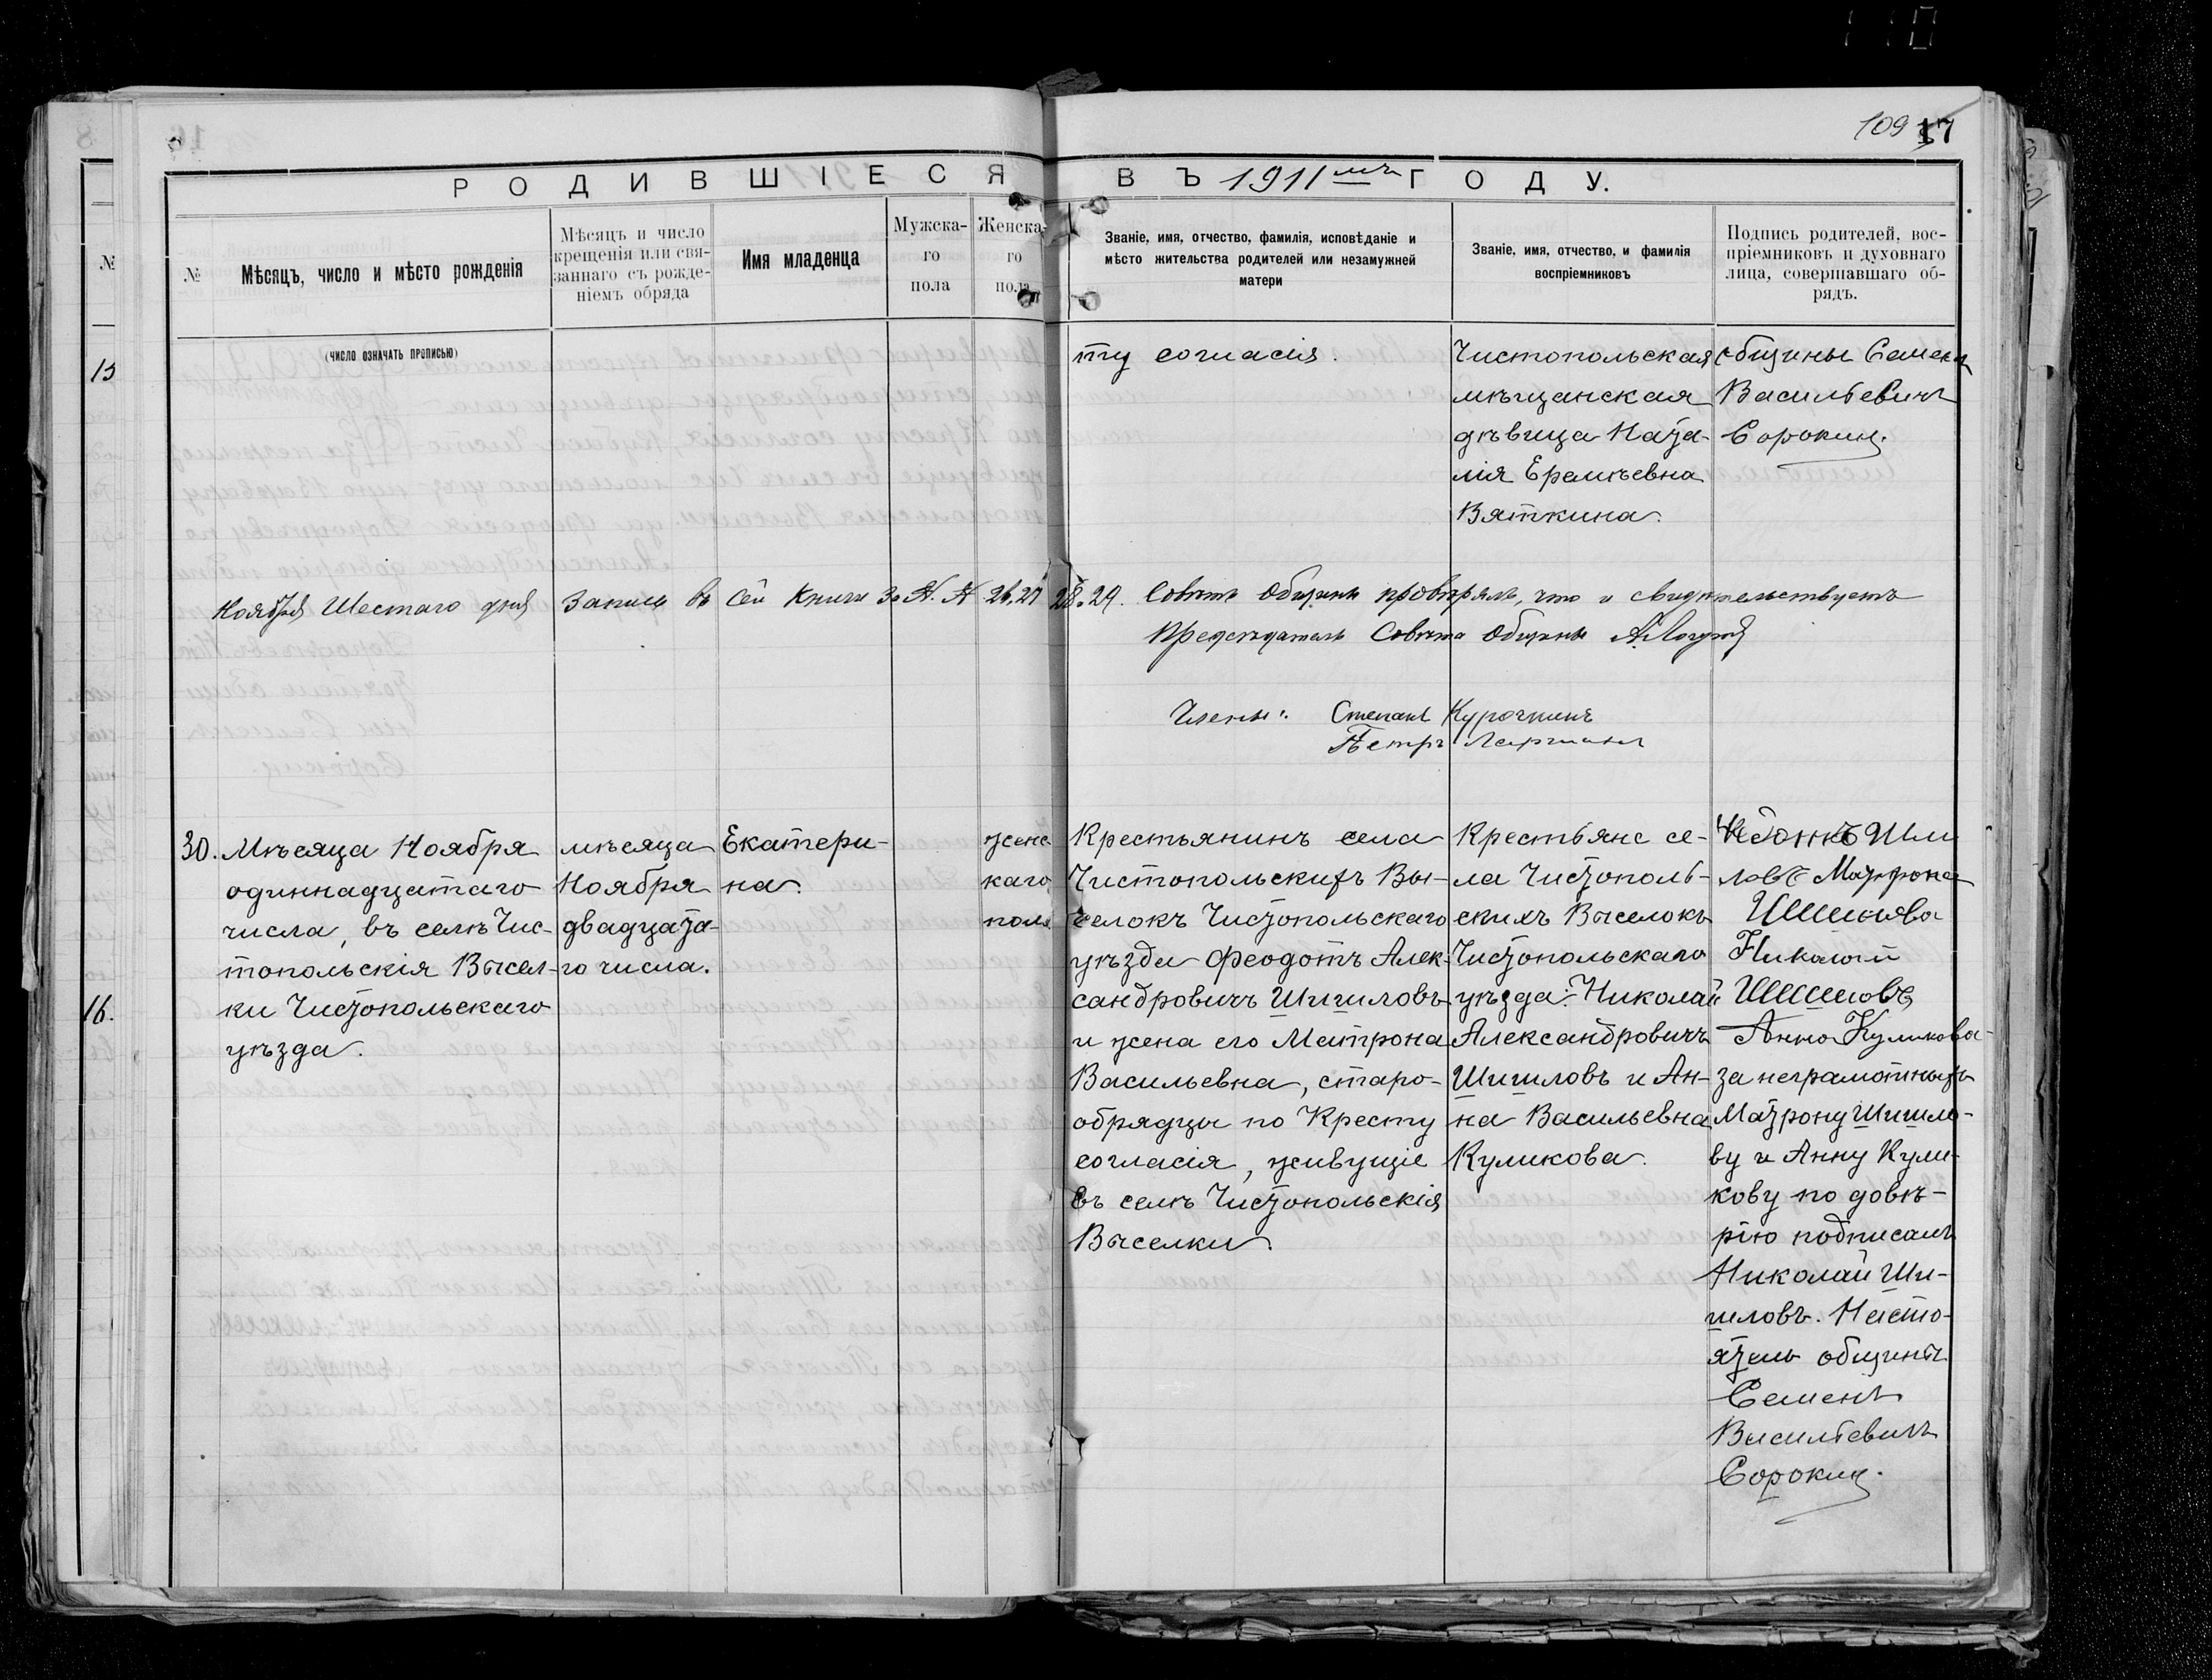 109 17
РОДИВШІЕСЯ ВЪ 1911мъ ГОДУ.
№
№
Мѣсяцъ, число и мѣсто рожденія
Мѣсяцъ и число
крещенія или свя-
заннаго съ рожде-
ніемъ обряда
Имя младенца
Мужска-
го
пола
Женска-
го
пола
Званіе, имя, отчество, фамилія, исповѣданіе и
мѣсто жительства родителей или незамужней
матери
Званіе, имя, отчество, и фамилія
воспріемниковъ
Подпись родителей, вос-
пріемниковъ и духовнаго
лица, совершавшаго об-
рядъ.
(число означать прописью)
15
ту согласія.
Чистопольская
мѣщанская
дѣвица Ната-
лія Еремѣевна
Вяткина.
общины Семенъ
Васильевичъ
Сорокин.
Ноября Шестаго дня Запись въ сей книге За №. № 26, 27 28. 29. Совѣтъ Общины провѣрялъ, что и свидѣтельствуетъ
Председатель Совѣта Общины
Члены: Степанъ Курочкинъ
Петръ
16.
30.
Мѣсяца Ноября
одиннадцатаго
числа, въ селѣ Чис-
топольскія Высел-
ки Чистопольскаго
уѣзда.
мѣсяца
Ноября
двадцата-
го числа.
Екатери-
на.
женс
каго
пола
Крестьянинъ села
Чистопольскихъ Вы-
селокъ Чистопольскаго
уѣзда Феодотъ Алек-
сандровичъ Шишловъ
и жена его Матрона
Васильевна, старо-
обрядцы по Кресту
согласія, живущіе
въ селѣ Чистопольскія
Выселки.
Крестьяне се-
ла Чистополь-
скихъ Выселокъ
Чистопольскаго
уѣзда: Николай
Александровичъ
Шишловъ и Ан-
на Васильевна
Куликова.
Ши
ловъ Матрона
Шишлова
Николай
Шишловъ
Анна Куликова
за неграмотныхъ
Матрону Шишло-
ву и Анну Кули-
кову по довѣ-
рію подписалъ
Николай Ши-
шловъ. Насто-
ятель общины
Семенъ
Васильевичъ
Сорокин.